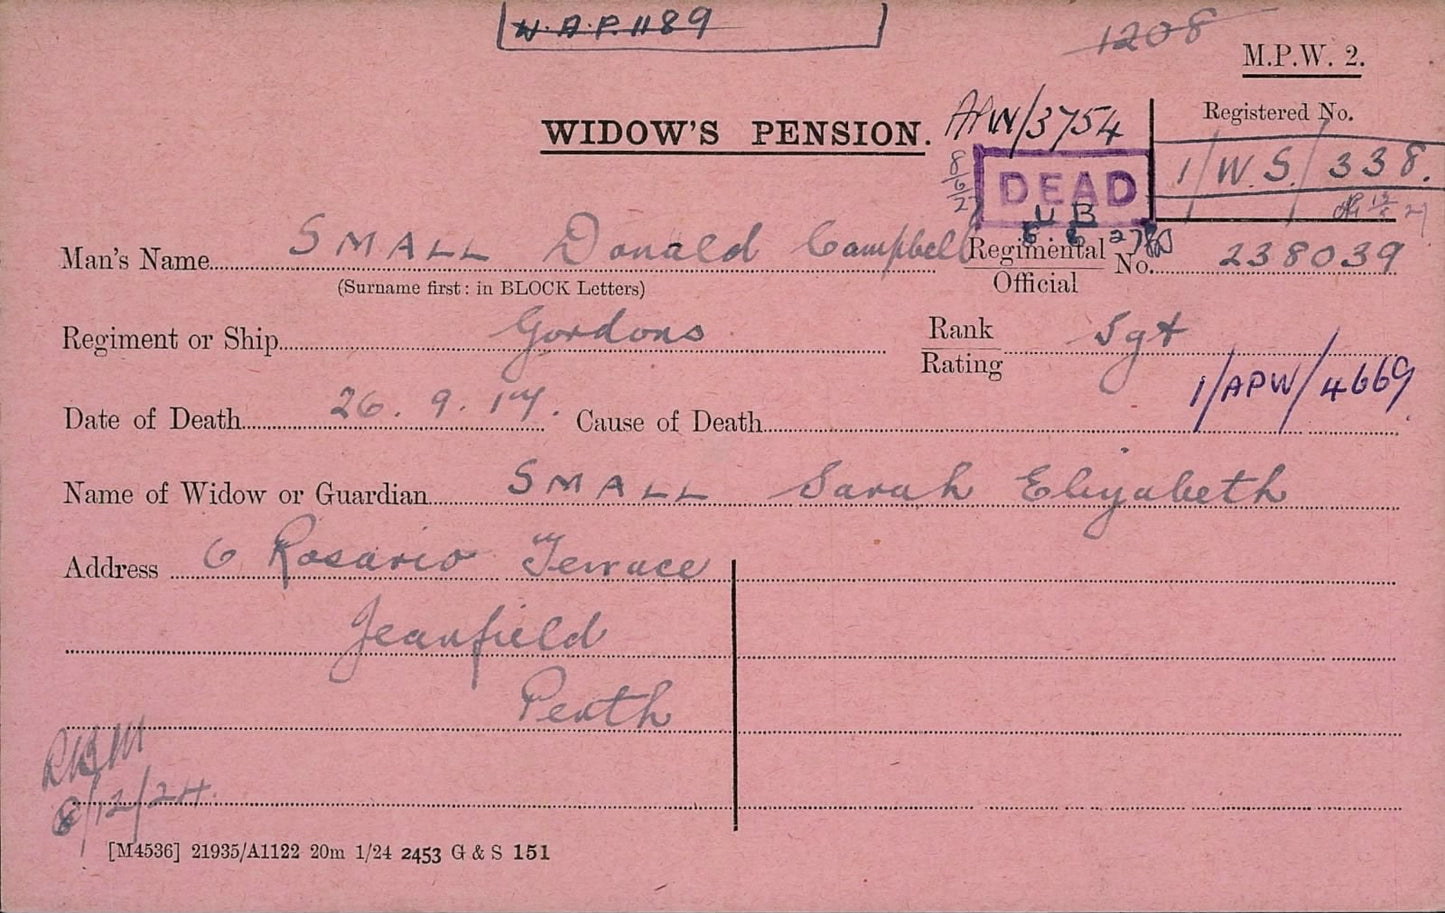 W.A.P. 1189
1208
M.P.W. 2.
WIDOW'S PENSION.
APW/3754
Registered No.
1/W.S./338.
8/6/27
DEAD
UB
8.6.27
Man's Name SMALL Donald Campbell
Regimental
Official No. 238039
(Surname first: in BLOCK Letters)
Regiment or Ship Gordons
Rank
Rating Sgt
1/APW/4669
Date of Death 26.9.17. Cause of Death
Name of Widow or Guardian SMALL Sarah Elizabeth
Address 6 Rosario Terrace
Jeanfield
Perth
8/12/24.
[M4536] 21935/A1122 20m 1/24 2453 G & S 151